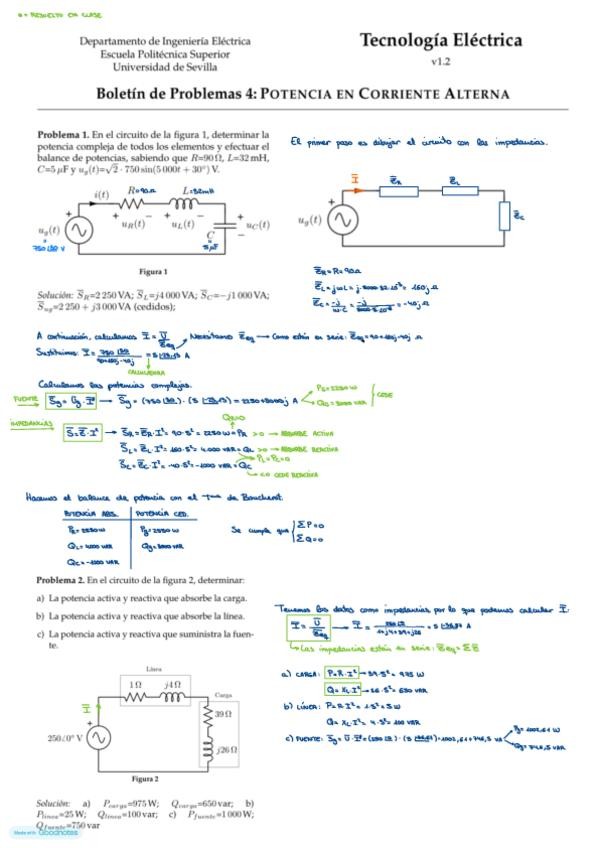 * = RESUELTO EN CLASE
Departamento de Ingeniería Eléctrica
Escuela Politécnica Superior
Universidad de Sevilla
Tecnología Eléctrica
v1.2
Boletín de Problemas 4: POTENCIA EN CORRIENTE ALTERNA
Problema 1. En el circuito de la figura 1, determinar la
potencia compleja de todos los elementos y efectuar el
balance de potencias, sabiendo que R=90Ω, L=32 mH,
C=5 μF y u_g(t)=√2 · 750 sin(5 000t + 30°) V.
El primer paso es dibujar el circuito con las impedancias.
i(t) R=90Ω L=32mH
u_R(t) u_L(t)
u_g(t) C u_C(t)
5μF
Figura 1
I Z_R Z_L
u_g(t) Z_C
Z_R = R = 90Ω
Z_L = jωL = j·5000·32·10⁻³ = 160j Ω
Z_C = -j/ω·C = = -40j Ω
Solución: S_R=2 250 VA; S_L=j4 000 VA; S_C=−j1 000 VA;
S_ug=2 250 + j3 000 VA (cedidos);
A continuación, calculamos I = U/Z_eq Necesitamos Z_eq → Como están en serie: Z_eq = 90+160j-40j Ω
Sustituimos: I = A
CALCULADORA
Calculamos las potencias complejas.
FUENTE S_g = U_g · I* → S_g = = 2250+3000j A P_g = 2250 W Q_g = 3000 VAR CEDE
IMPEDANCIAS S = Z·I² → S_R = Z_R·I² = 90·5² = 2250 W = P_R >0 → ABSORBE ACTIVA
Q_R=0
S_L = Z_L·I² = 160·5² = 4.000 VAR = Q_L >0 → ABSORBE REACTIVA
P_L = P_C = 0
S_C = Z_C·I² = -40·5² = -1000 VAR = Q_C
<0 CEDE REACTIVA
Hacemos el balance de potencia con el T.ma de Boucherot.
POTENCIA ABS. POTENCIA CED.
P_R = 2250 W P_g = 2250 W
Q_L = 4000 VAR Q_g = 3000 VAR
Q_C = -1000 VAR
Se cumple que ΣP=0
ΣQ=0
Problema 2. En el circuito de la figura 2, determinar:
a) La potencia activa y reactiva que absorbe la carga.
b) La potencia activa y reactiva que absorbe la línea.
c) La potencia activa y reactiva que suministra la fuen-
te.
Línea
1 Ω j4 Ω
Carga
39 Ω
j26 Ω
I
250∠0° V
Figura 2
Tenemos los datos como impedancias por lo que podemos calcular I.
I = U/Z_eq → I = A
Las impedancias están en serie: Z_eq = ΣZ
a) CARGA: P = R·I² → 39·5² = 975 W
Q = X_L·I² → 26·5² = 650 VAR
b) LÍNEA: P = R·I² = 1·5² = W
Q = X_L·I² = 4·5² = 100 VAR
c) FUENTE: S_g = U·I* = = 1002,61+746,5 VA P_g = 1002,61 W
Q_g = 746,5 VAR
Solución: a) P_carga=975 W; Q_carga=650 var; b)
P_línea=25 W; Q_línea=100 var; c) P_fuente=1 000 W;
Q_fuente=750 var
Made with Goodnotes